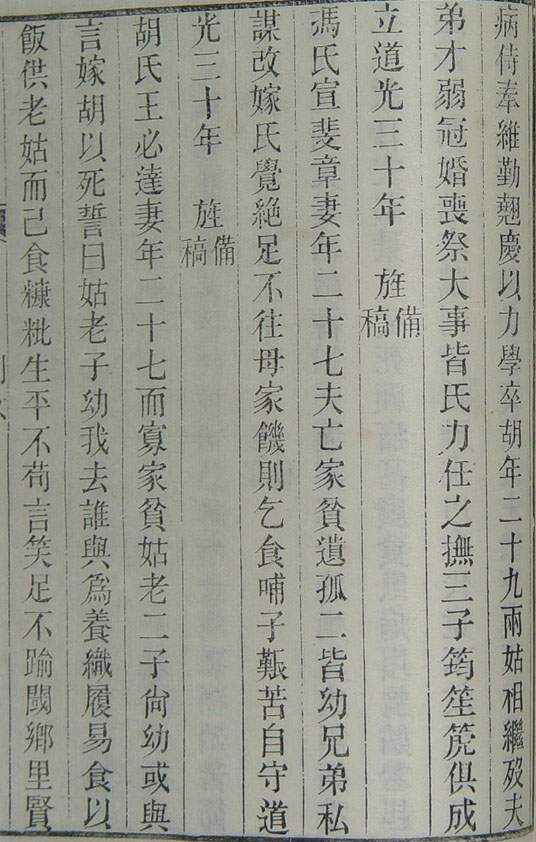 病侍奉維勤翹慶以力學卒胡年二十九兩姑相繼歿夫
弟才弱冠婚喪祭大事皆氏力任之撫三子筠笙箎俱成
立道光三十年 旌備稿
馮氏宣斐章妻年二十七夫亡家貧遺孤二皆幼兄弟私
謀改嫁氏覺絕足不往母家饑則乞食哺子艱苦自守道
光三十年 旌備稿
胡氏王必達妻年二十七而寡家貧姑老二子尙幼或與
言嫁胡以死誓曰姑老子幼我去誰與爲養織履易食以
飯供老姑而己食糠粃生平不苟言笑足不踰閾鄉里賢